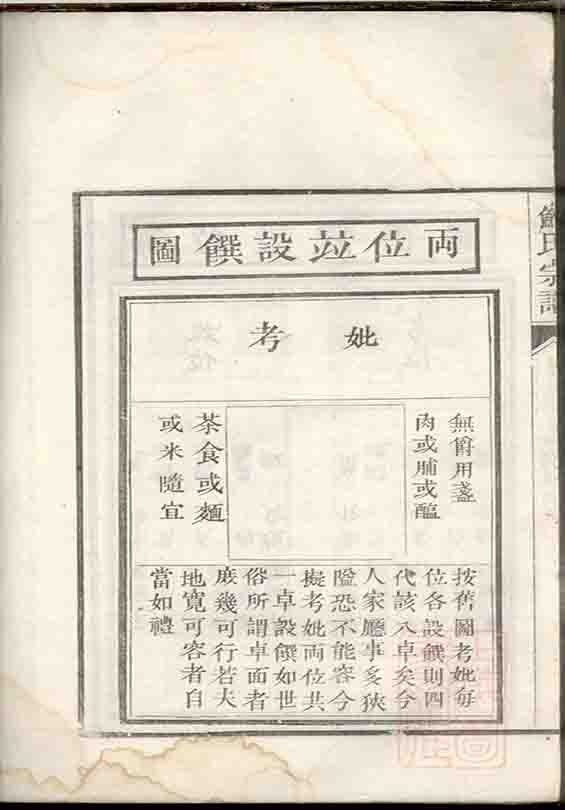 鮑氏宗譜
両位竝設饌圖
妣
考
無爵用盞
肉或脯或醢
茶食或麵
或米隨宜
按舊圖考妣每
位各設饌則四
代該八卓矣今
人家廳事多狹
隘恐不能容今
擬考妣両位共
一卓設饌如世
俗所謂卓面者
庻幾可行若夫
地寬可容者自
當如禮